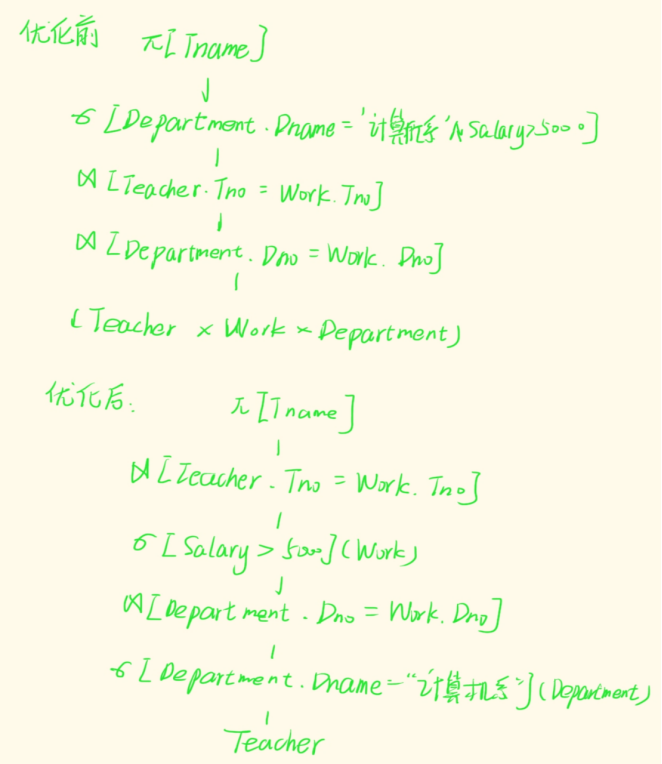 优化前 π[Tname]
σ[Department.Dname='计算机系'∧Salary>5000]
⋈[Teacher.Tno = Work.Tno]
⋈[Department.Dno = Work.Dno]
(Teacher × Work × Department)
优化后: π[Tname]
⋈[Teacher.Tno = Work.Tno]
σ[Salary > 5000](Work)
⋈[Department.Dno = Work.Dno]
σ[Department.Dname="计算机系"](Department)
Teacher